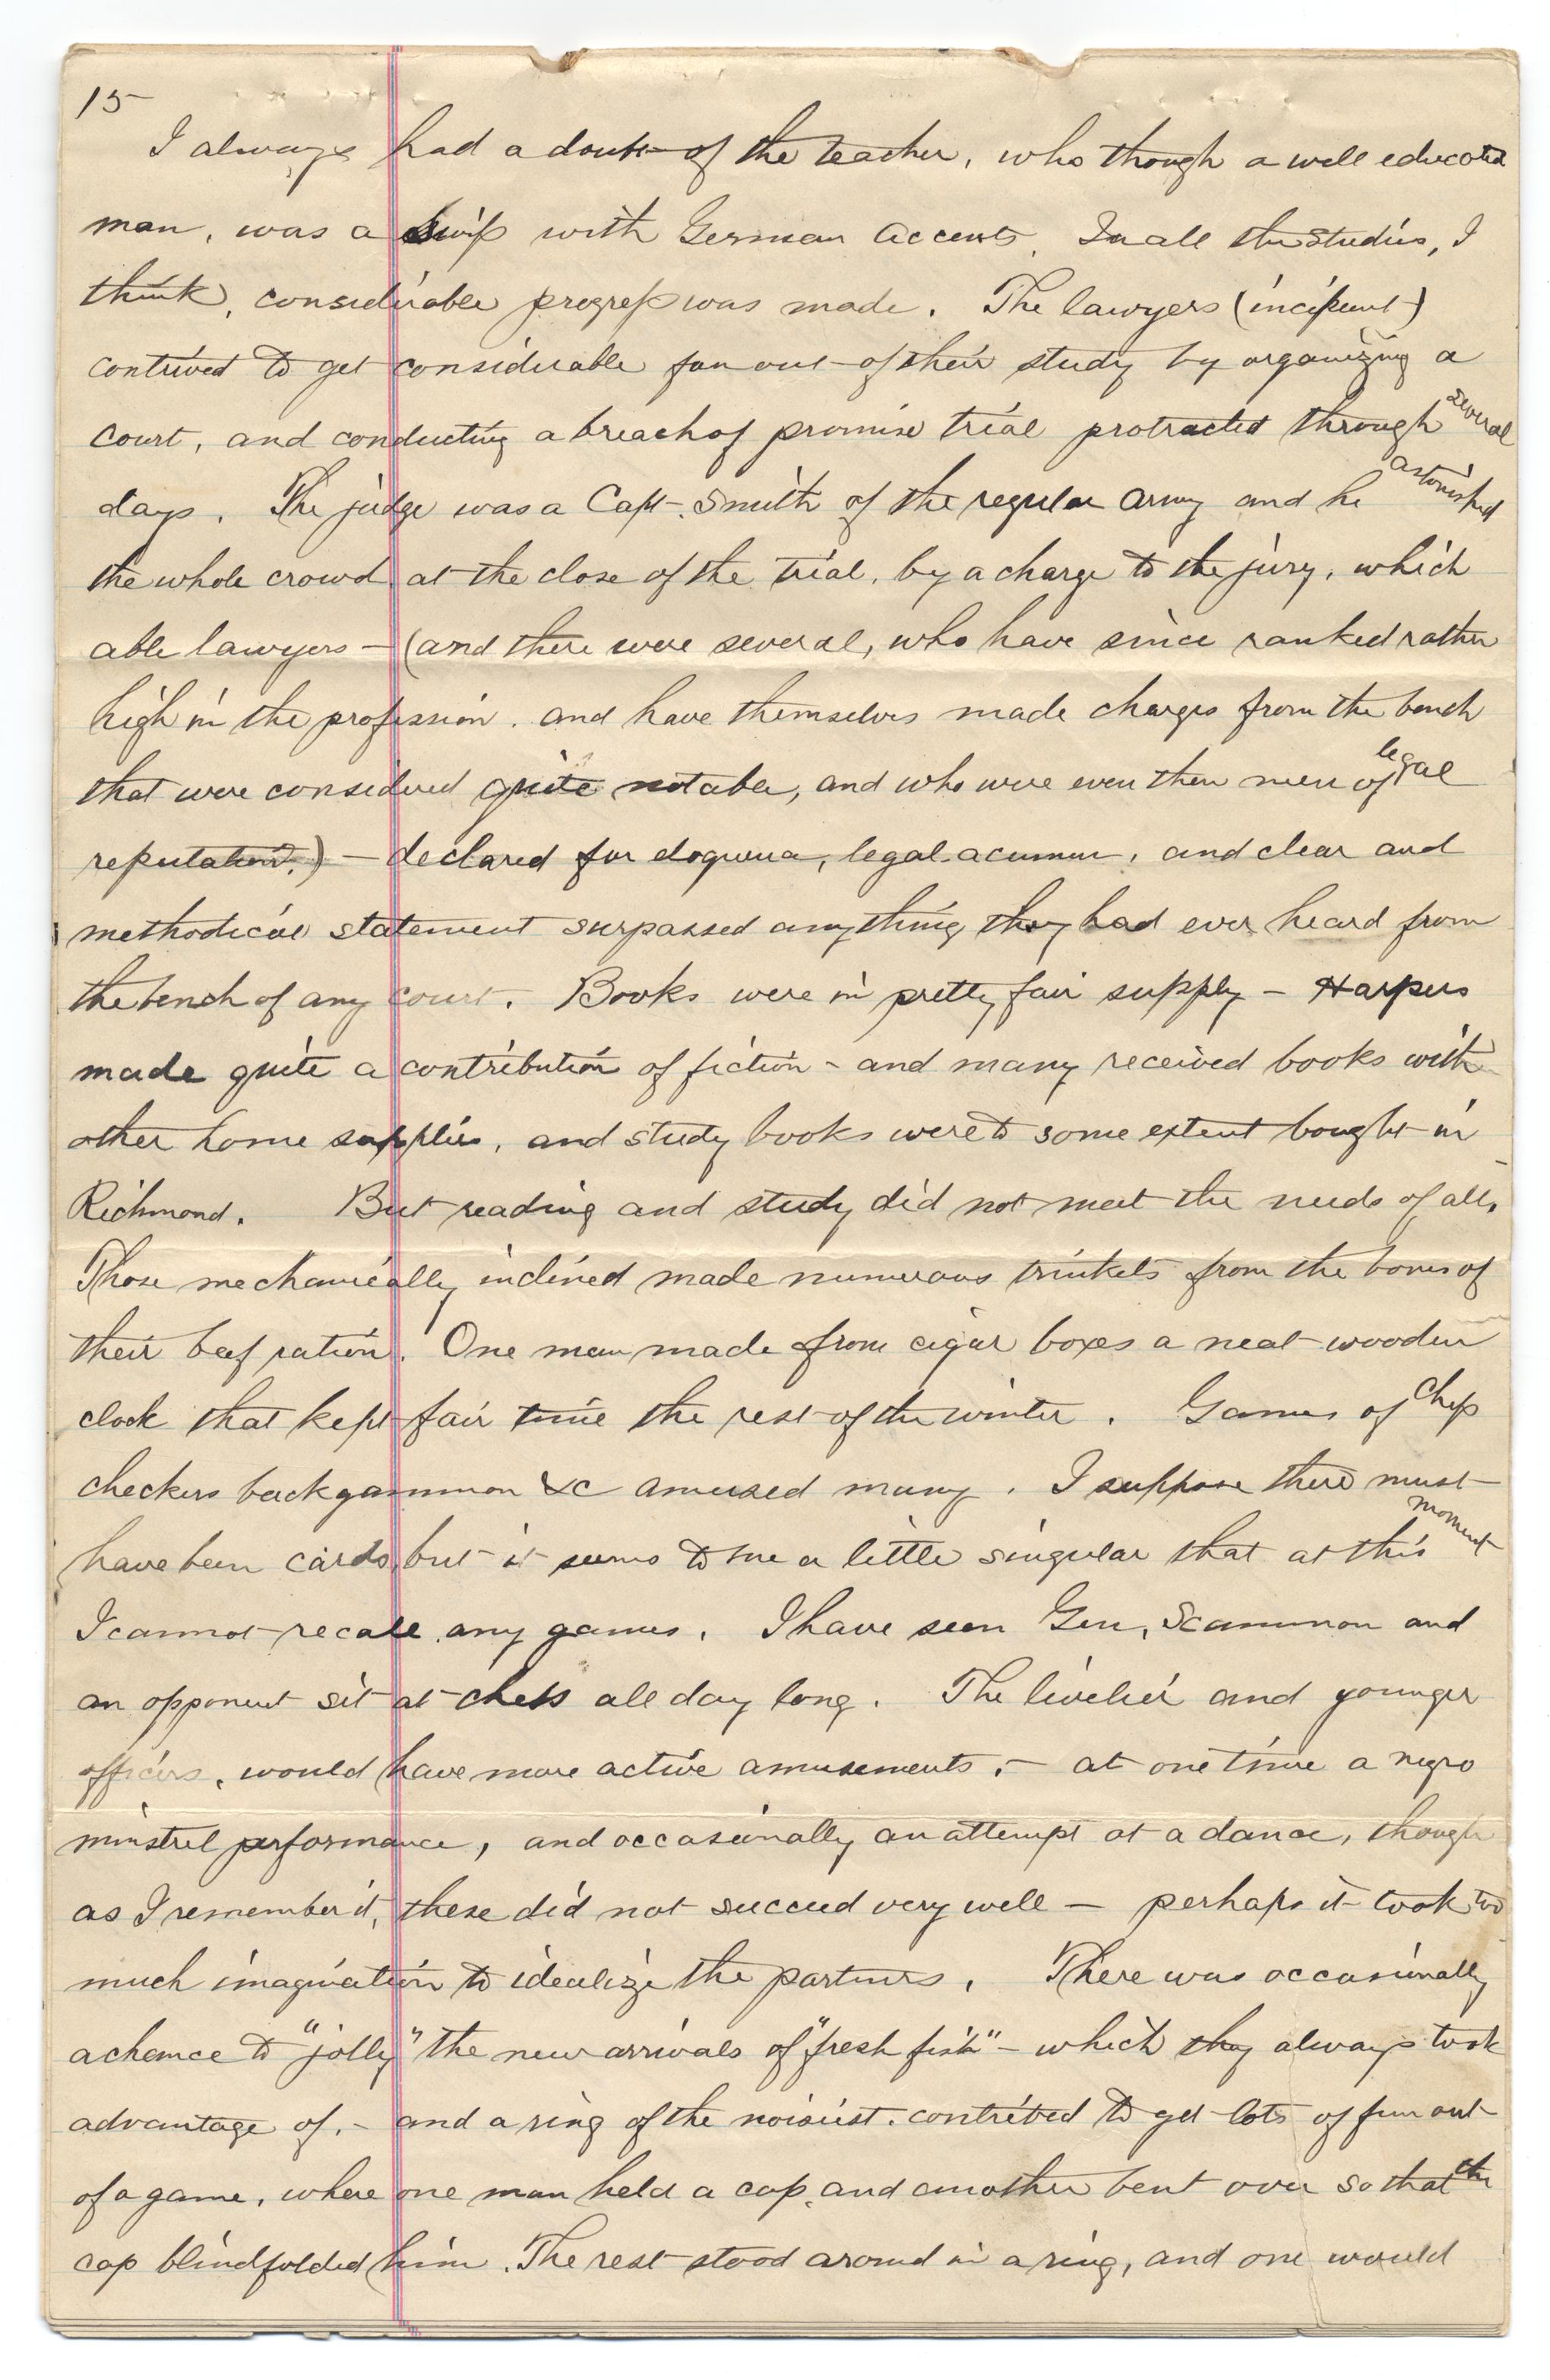 15
I always had a doubt of the teacher, who though a well educated
man, was a Swiss with German accents. In all the studies, I
think, considerable progress was made. The lawyers (incipient)
contrived to get considerable fun out of their study by organizing a
court, and conducting a breach of promise trial protracted through several
days. The judge was a Capt. Smith of the regular army and he astonished
the whole crowd at the close of the trial, by a charge to the jury, which
able lawyers — (and there were several, who have since ranked rather
high in the profession, and have themselves made charges from the bench
that were considered quite notable, and who were even then men of legal
reputation.) — declared for eloquence, legal acumen, and clear and
methodical statement surpassed anything they had ever heard from
the bench of any court. Books were in pretty fair supply — Harpers
made quite a contribution of fiction - and many received books with
other home supplies, and study books were to some extent bought in
Richmond. But reading and study did not meet the needs of all.
Those mechanically inclined made numerous trinkets from the bones of
their beef ration. One man made from cigar boxes a neat wooden
clock that kept fair time the rest of the winter. Games of chess
checkers backgammon &c amused many. I suppose there must
have been cards, but it seems to me a little singular that at this moment
I cannot recall any games. I have seen Gen. Scammon and
an opponent sit at chess all day long. The livelier and younger
officers, would have more active amusements, - at one time a negro
minstrel performance, and occasionally an attempt at a dance, though
as I remember it, these did not succeed very well — perhaps it took too
much imagination to idealize the partners. There was occasionally
a chance to "jolly" the new arrivals of "fresh fish" - which they always took
advantage of, - and a ring of the noisiest contrived to get lots of fun out
of a game, where one man held a cap, and another bent over so that the
cap blindfolded him. The rest stood around in a ring, and one would